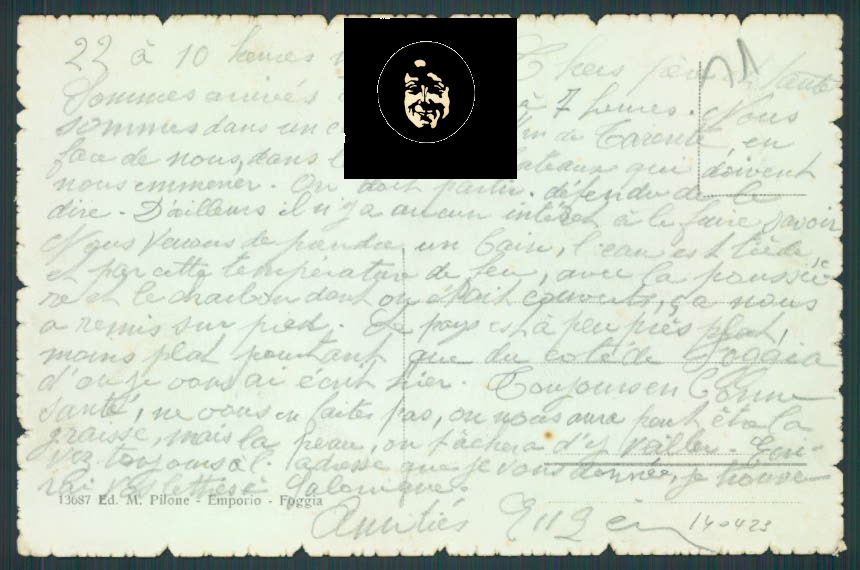 22 à 10 heures Chers
Sommes arrivés à 7 heures. Nous
sommes dans un de Tarente, en
face de nous, dans bateaux qui doivent
nous emmener. On doit partir. défendu de le
dire. D'ailleurs il n'y a aucun intérêt à le faire savoir
Nous venons de prendre un bain, l'eau est tiède,
et par cette température de feu, avec la poussiè
re et le charbon dont on était couverts, ça nous
a remis sur pied. Le pays est à peu près plat,
moins plat pourtant que du coté de Foggia
d'où je vous ai écrit hier. Toujours en bonne
santé, ne vous en faites pas, on nous aura peut être la
graisse, mais la peau, on tâchera d'y veiller. Ecri-
vez toujours à l'adresse que je vous donnée, je trouve-
rai vos lettres à Salonique.
13687 Ed. M. Pilone - Emporio - Foggia
Amitiés Eugèn
140423